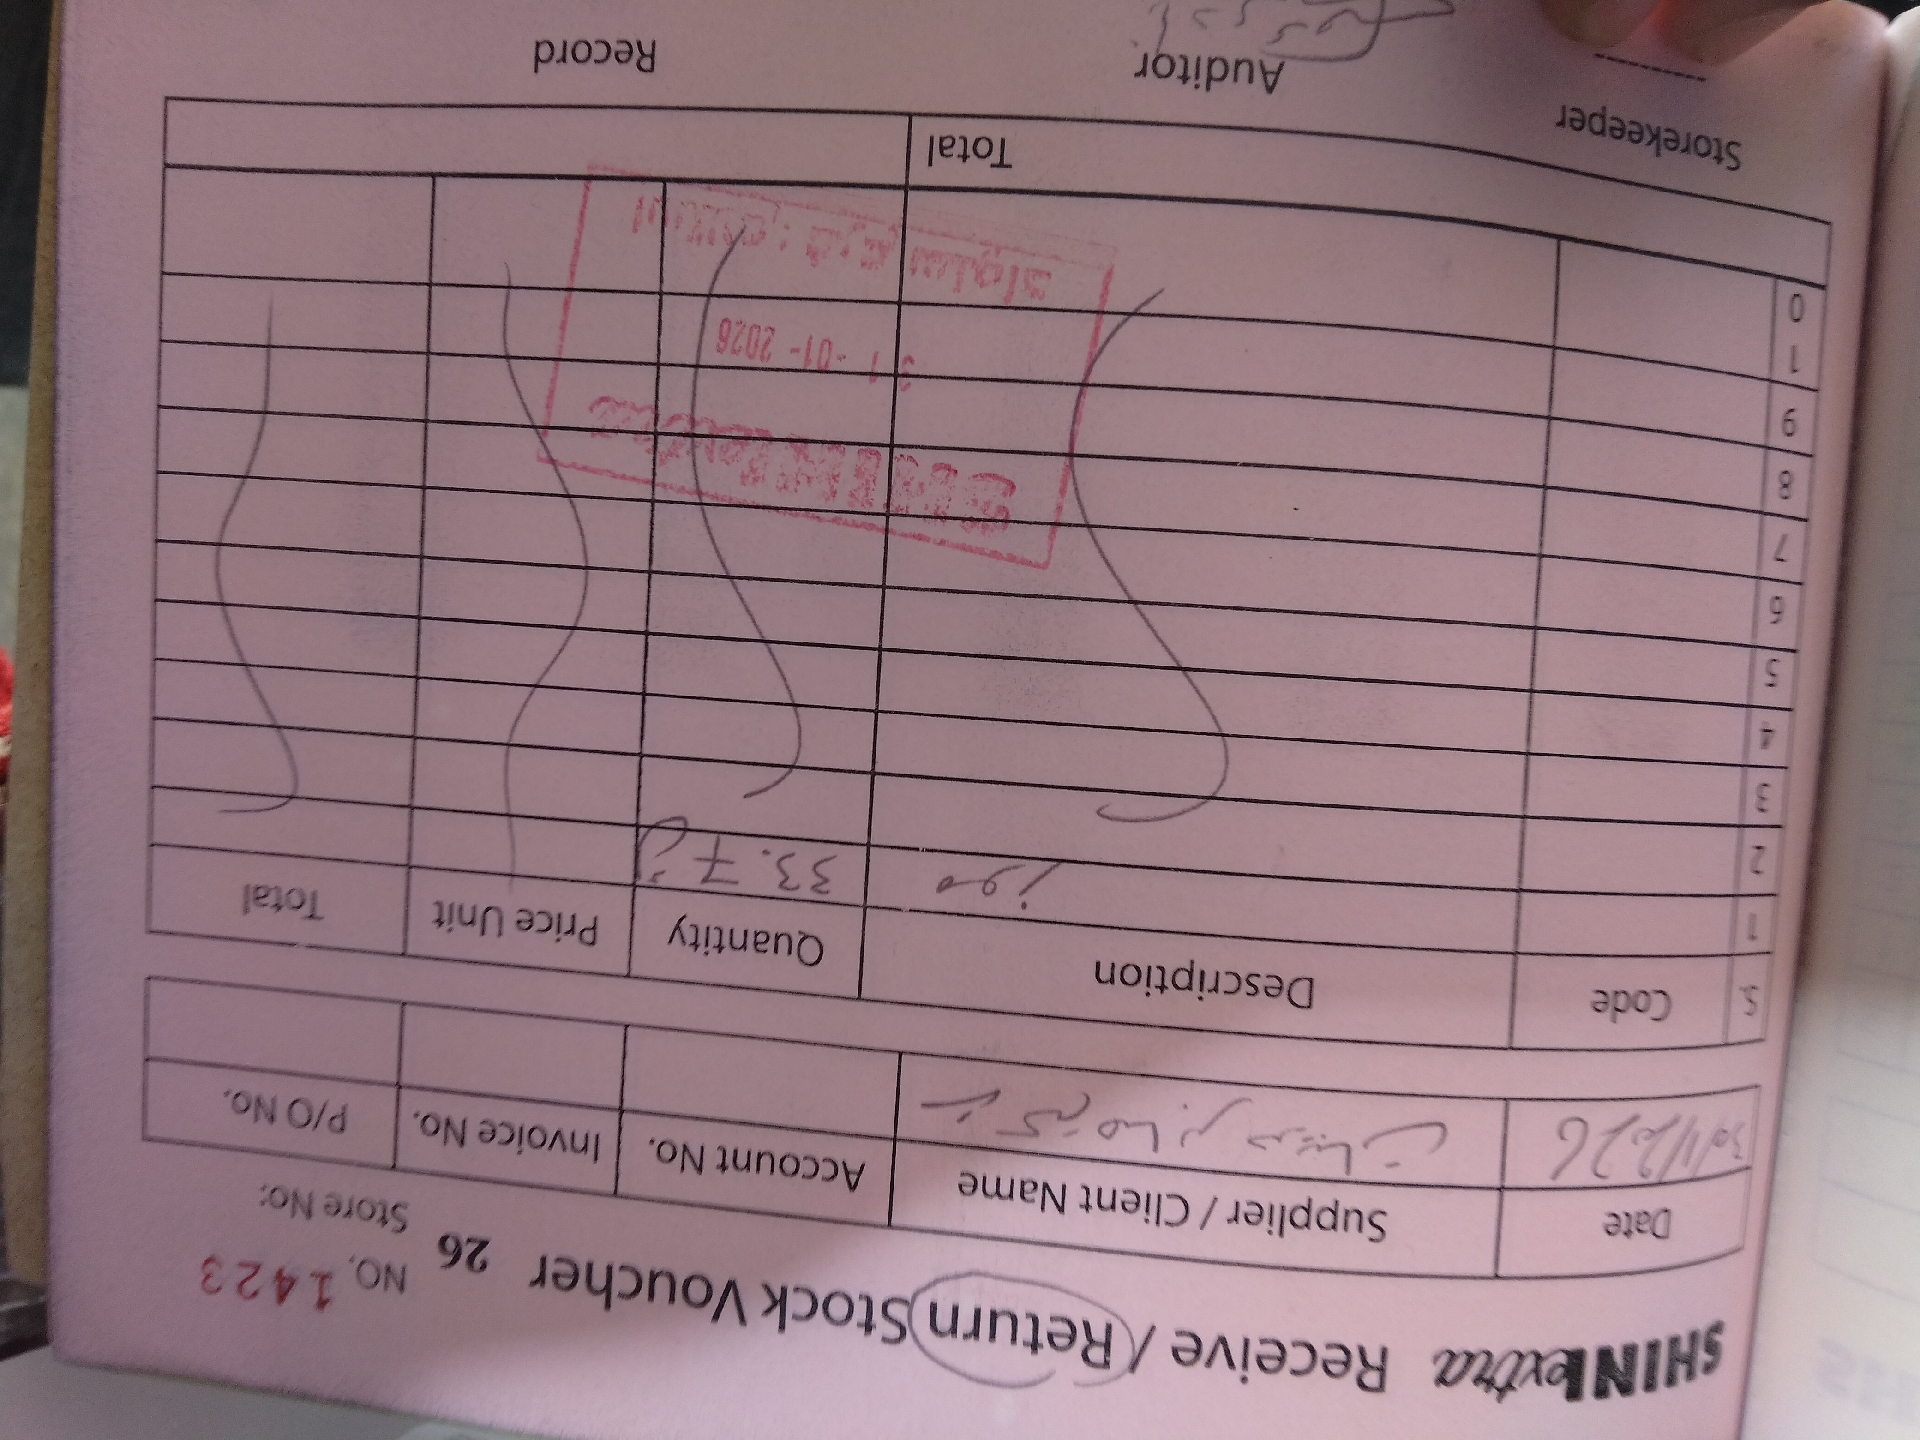 SHINExtra Receive / Return Stock Voucher 26 NO. 1423
Store No:
Date Supplier / Client Name Account No. Invoice No. P/O No.
30/1/2026
S. Code Description Quantity Price Unit Total
1 موز 33.7
2
3
4
5
6
7
8
9
1
0
31-01-2026
Total
Storekeeper Auditor Record